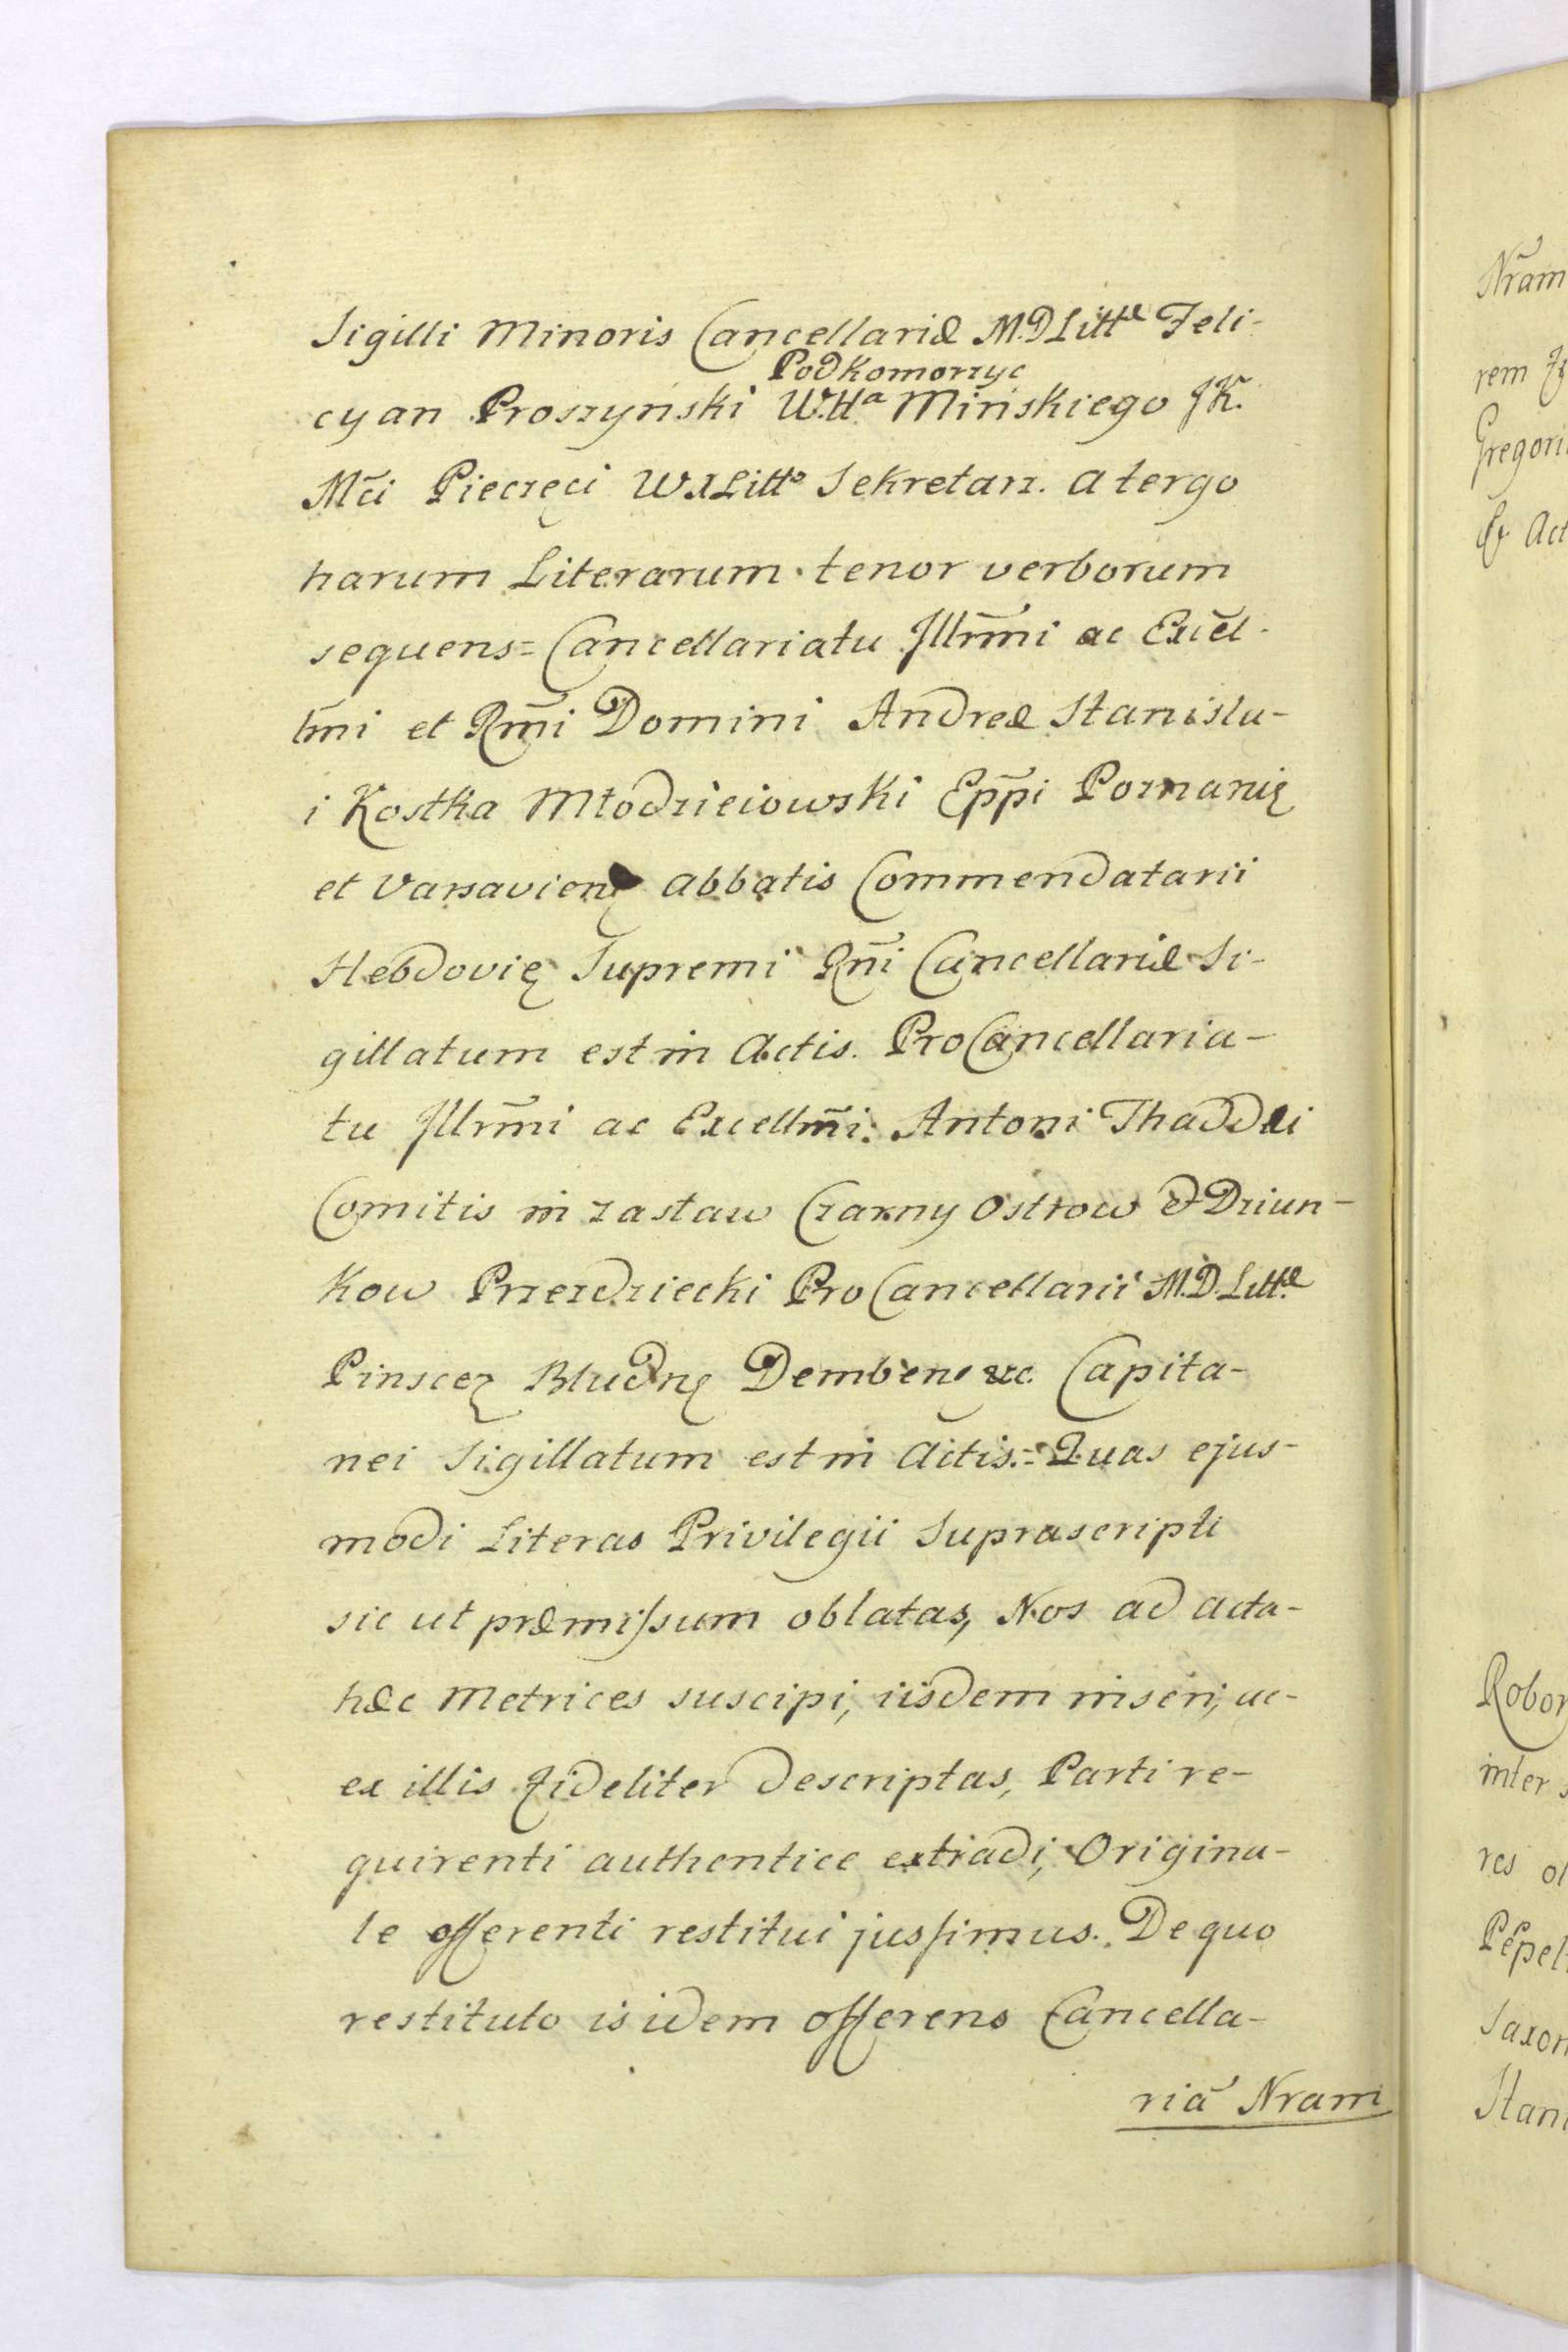 Sigilli Minoris Cancellariæ M.D Littæ Feli-
Podkomorzyc
cyan Proszyński W.ttª Mińskiego JK.
Mc̃i Pieczęci WXLittº Sekretarz. A tergo
harum Literarum tenor verborum
sequens = Cancellariatu Jllrm̃i ac Excel-
lm̃i et Rm̃i Domini Andreæ Stanisla-
i Kostka Młodzieiowski Epp̃i Poznanię
et Varsavienę Abbatis Commendatarii
Hebdovię Supremi Rñi Cancellariæ Si-
gillatum est in Actis. ProCancellaria-
tu Jllrm̃i ac Excellm̃i. Antoni Thaddæi
Comitis in Zastaw Czarny Ostrow & Dziun-
kow Przezdziecki ProCancellarii M.D. Littæ
Pinsceę Bludnę Dembenę &c. Capita-
nei Sigillatum est in Actis. = Quas ejus-
modi Literas Privilegii Suprascripti
sic ut præmissum oblatas, Nos ad acta-
hæc Metrices suscipi, iisdem inseri, ac-
ex illis Fideliter Descriptas, Parti re-
quirenti authentice extradi, Origina-
le offerenti restitui jussimus. De quo
restituto is idem offerens Cancella-
riã Nram
Nr̃am
rem
Gregori
& Act
Robor
inter s
res ol
Pepel
Saxon
Stani